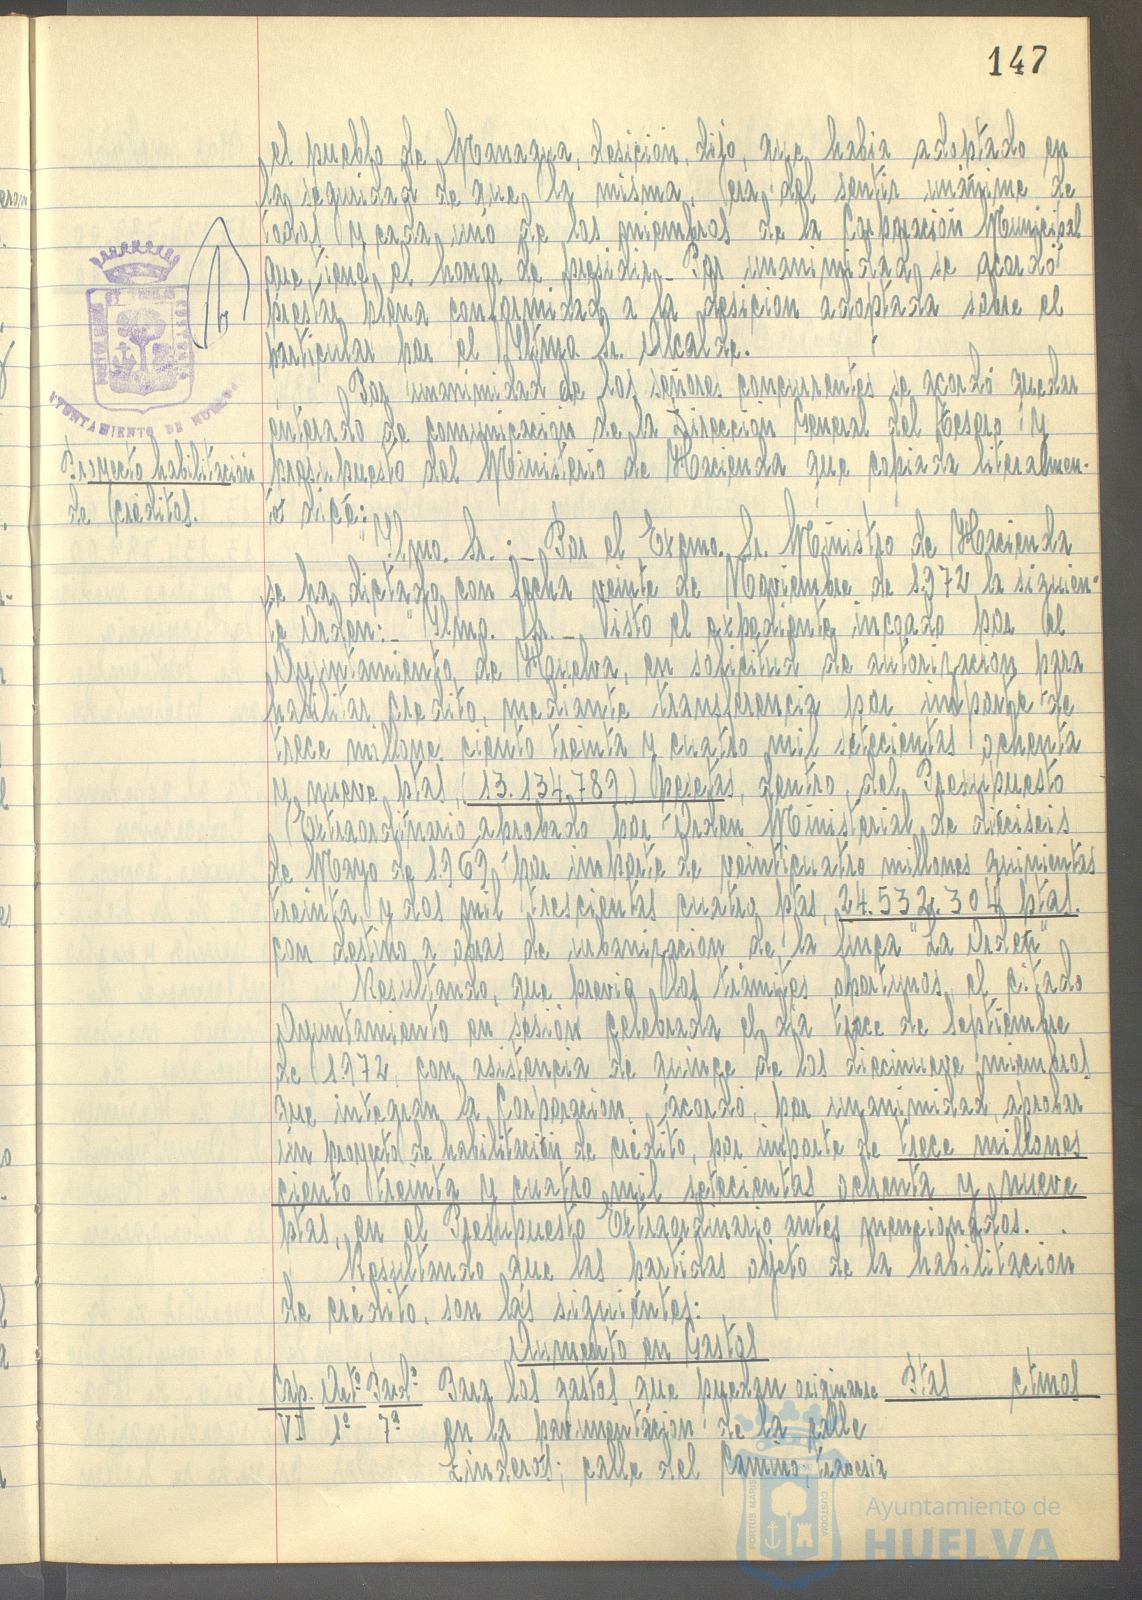 147
el pueblo de Managua, desición, dijo, que había adoptado en
la seguridad de que la misma, era del sentir unánime de
todos y cada uno de los miembros de la Corporación Municipal
que tiene el honor de presidir._ Por unanimidad se acordó
prestar plena conformidad a la desición adoptada sobre el
particular por el Iltmo. Sr. Alcalde.
AYUNTAMIENTO DE HUELVA
Proyecto habilitación
de créditos.
Por unanimidad de los señores concurrentes se acordó quedar
enterado de comunicación de la Dirección General del Tesoro y
presupuesto del Ministerio de Hacienda que copiada literalmen-
te dice:
"Ilmo. Sr.:_ Por el Excmo. Sr. Ministro de Hacienda
se ha dictado con fecha veinte de Noviembre de 1.972 la siguien-
te Orden:_ "Ilmo. Sr._ Visto el expediente incoado por el
Ayuntamiento de Huelva, en solicitud de autorización para
habilitar crédito, mediante transferencia por importe de
trece millone ciento treinta y cuatro mil setecientas ochenta
y nueve ptas, (13.134.789,) pesetas, dentro del Presupuesto
Extraordinario aprobado por Orden Ministerial de dieciseis
de Mayo de 1.969 por importe de veinticuatro millones quinientas
treinta y dos mil trescientas cuatro ptas, 24.532.304 ptas.
con destino a obras de urbanización de la finca "La Orden"
Resultando, que previo los trámites oportunos, el citado
Ayuntamiento en sesión celebrada el día trece de Septiembre
de 1.972, con asistencia de quince de los diecinueve miembros
que integran la Corporación, acordó, por unanimidad, aprobar
un proyecto de habilitación de crédito, por importe de trece millones
ciento treinta y cuatro mil setecientas ochenta y nueve
ptas, en el Presupuesto Extraordinario antes mencionados.
Resultando que las partidas objeto de la habilitación
de crédito, son las siguientes:
Aumento en Gastos
Cap. Artº Partª Para los gastos que puedan originarse Ptas ctmos
VI 1º 7ª en la pavimentación de la calle
Linderos; calle del Camino, travesia
PORTUS MARIS CUSTODIA
Ayuntamiento de
HUELVA